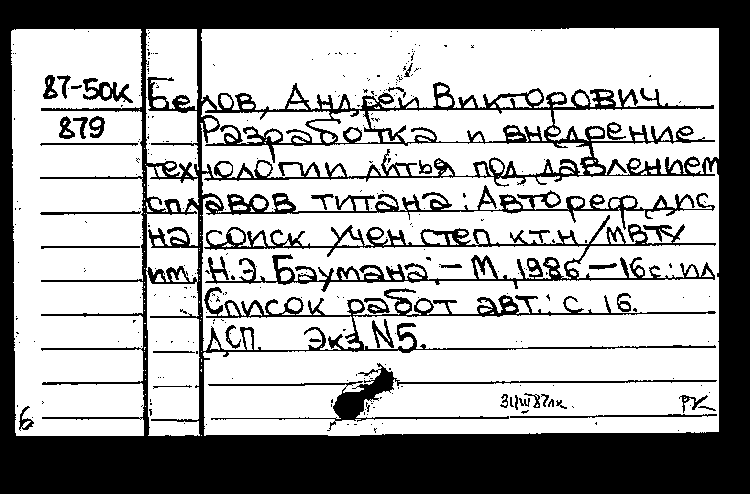 87-50к Белов, Андрей Викторович.
879 Разработка и внедрение
технологии литья под давлением
сплавов титана: Автореф. дис.
на соиск. учен. степ. к.т.н./МВТУ
им. Н.Э. Баумана. - М., 1986. - 16 с.: ил.
Список работ авт.: с. 16.
ДСП. Экз. N5.
РК
6